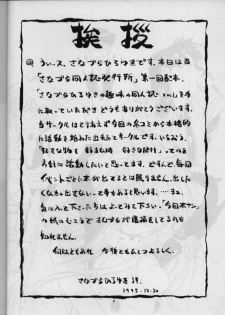 挨拶
◎ うぃース、さなづらひろゆきです。本日は当
「さなづら同人誌発行所」第一回配本、
「さなづらひろゆきの趣味の同人誌 vol.1」を手
に取っていただき どうもありがとうございます。
当サークルはとりあえず今回の冬コミから本格
的に活動を始めた出来たてサークルです。いちおう、
「好きな物を 好きな時 好きなだけ」っての
方針に活動したいと思ってます。ですんで、毎回
イベントごとに本が出てるとは限りません。出した
くなきゃ出さないって事もあると思います。……まぁ、
気に入って下さった方は よって下さい。「今回本ナシ」
の紙のむこうで さなづらが店番をしてるかも
知れません。
何はともあれ 今後ともよろしく。
さなづらひろゆき 拝。
1995.12.30